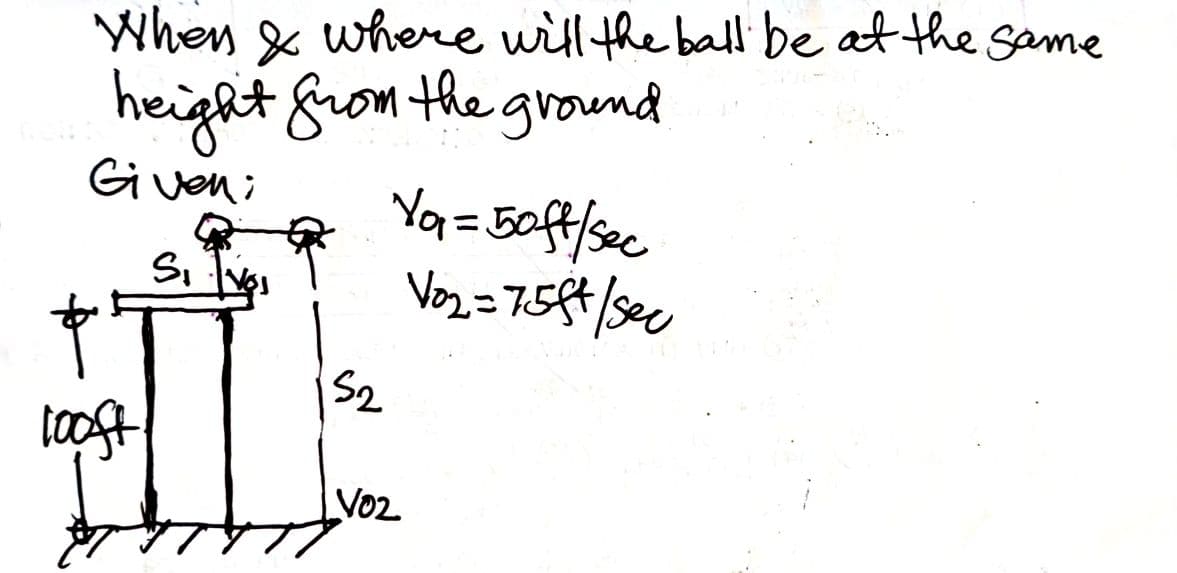 When & where will the ball be at the same
height from the ground
Given;
V01 = 50ft/sec
S1 V01
V02 = 75ft/sec
S2
100ft
V02